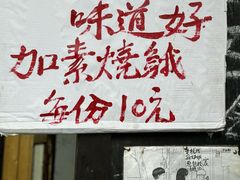 味道好
加素燒鵝
每份10元